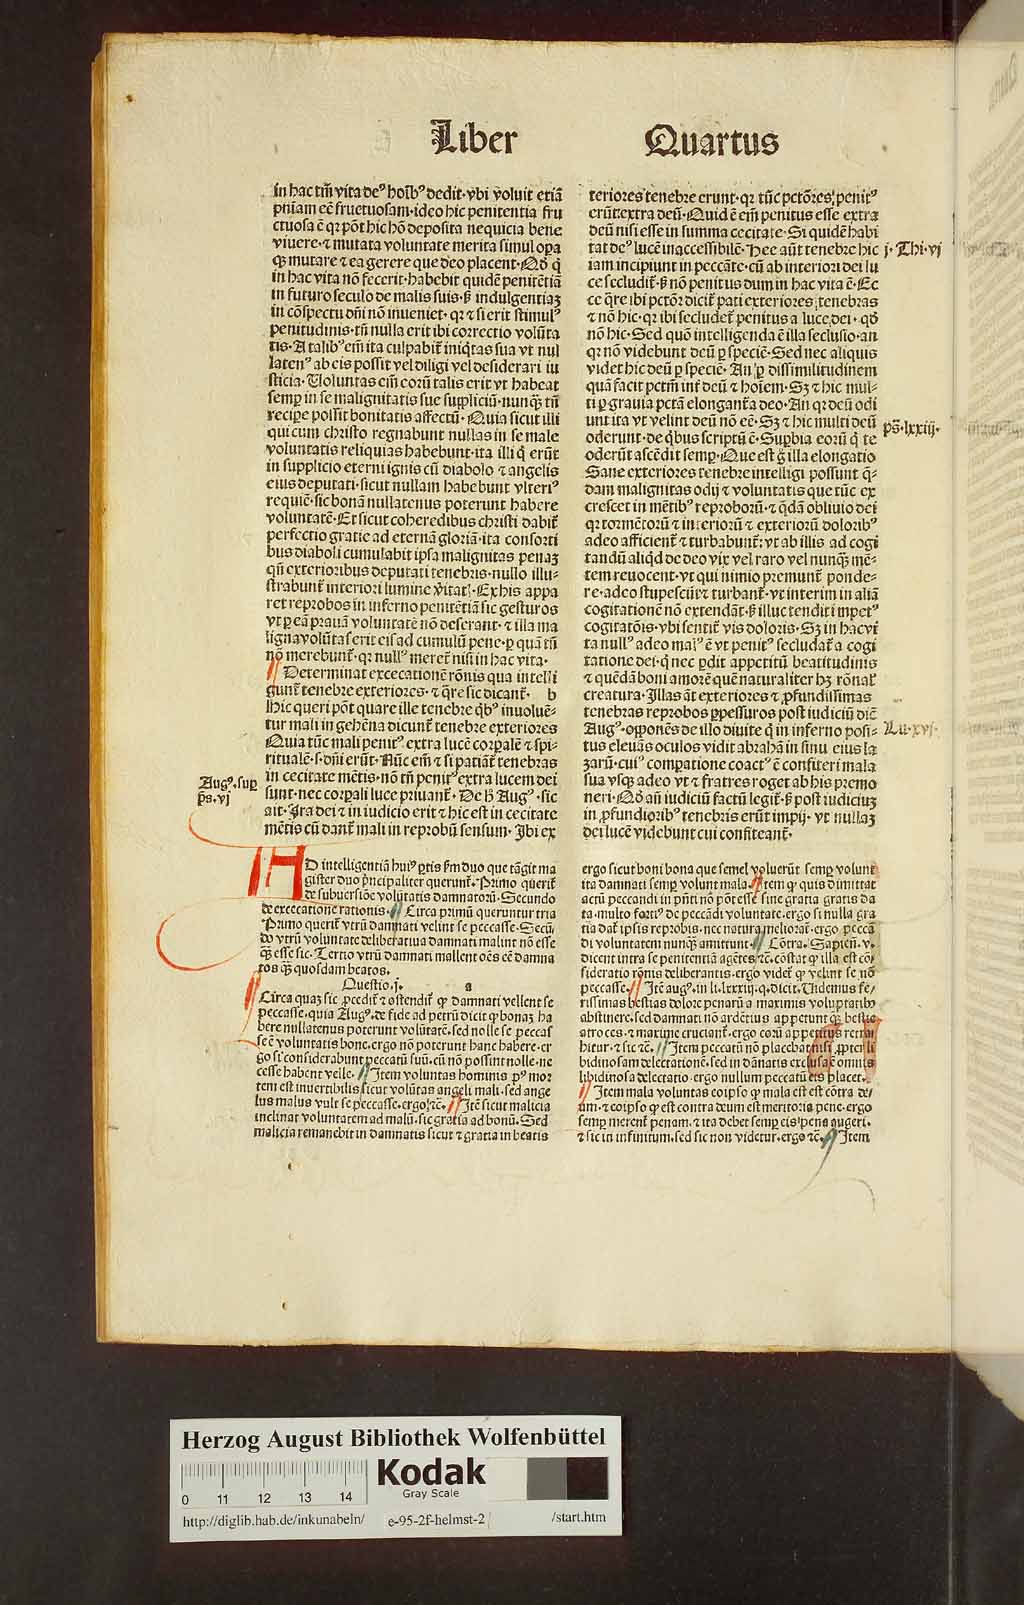 Liber Quartus
in hac tm̄ vita deꝰ hoībꝰ dedit·vbi voluit etiā
pn̄iam eē fructuosam·ideo hic penitentia fru
ctuosa ē qꝛ pōt hic hō deposita nequicia bene
viuere·⁊ mutata voluntate merita simul oꝑa
qꝫ mutare ⁊ ea gerere que deo placent·Qđ q̄
in hac vita nō fecerit·habebit quidē penitētiā
in futuro seculo de malis suis·ꝫ indulgentiaꝫ
in cōspectu dn̄i nō inueniet·qꝛ ⁊ si erit stimulꝰ
penitudinis·tn̄ nulla erit ibi correctio volūta
tis·A talibꝰ em̄ ita culpabit̄ iniq̄tas sua vt nul
latenꝰ ab eis possit vel diligi vel desiderari iu
sticia·Uoluntas em̄ eorū talis erit vt habeat
semꝑ in se malignitatis sue supliciū·nunqꝫ tn̄
recipe possit bonitatis affectū·Quia sicut illi
qui cum christo regnabunt nullas in se male
voluntatis reliquias habebunt·ita illi q̄ erūt
in supplicio eterni ignis cū diabolo ⁊ angelis
eius deputati·sicut nullam habebunt vlteriꝰ
requiē·sic bonā nullatenus poterunt habere
voluntatē·Et sicut coheredibus christi dabit̄
perfectio gratie ad eternā gloriā·ita consorti
bus diaboli cumulabit ipsa malignitas penaꝫ
qn̄ exterioribus deputati tenebris·nullo illu⸗
strabunt̄ interiori lumine v̄itatꝭ·Ex his appa
ret reprobos in inferno penitētiā sic gesturos
vt ꝑ eā prauā voluntatē nō deserant·⁊ illa ma
ligna volūtas erit eis ad cumulū pene·ꝑ quā tn̄
nō merebunt̄·qꝛ nullꝰ meret̄ nisi in hac vita·
Determinat excecationē rōnis qua intelli
gunt̄ tenebre exteriores·⁊ q̄re sic dicant̄· b
Hic queri pōt quare ille tenebre q̄bꝰ inuoluē⸗
tur mali in gehēna dicunt̄ tenebre exteriores
Quia tūc mali penitꝰ extra lucē corꝑalē ⁊ spi⸗
ritualē·s·dn̄i erūt·Nūc em̄ ⁊ si patiant̄ tenebras
in cecitate mētis·nō tn̄ penitꝰ extra lucem dei
Augꝰ·suꝑ
ps̄·vj
sunt·nec corꝑali luce priuant̄·De ħ Augꝰ·sic
ait·Ira dei ⁊ in iudicio erit ⁊ hic est in cecitate
mētis cū dant̄ mali in reprobū sensum·Ibi ex
teriores tenebre erunt·qꝛ tūc pctōres penitꝰ
erūt extra deū·Quid ē em̄ penitus esse extra
deū nisi esse in summa cecitate·Si quidē habi
tat deꝰ lucē inaccessibilē·Hec aūt tenebre hic
j·Thi·vj
iam incipiunt in peccāte·cū ab interiori dei lu
ce secludit̄·ꝫ nō penitus dum in hac vita ē·Ec
ce q̄re ibi pctōr dicit̄ pati exteriores tenebras
⁊ nō hic·qꝛ ibi secludet̄ penitus a luce dei·qđ
nō hic·Sed quō intelligenda ē illa seclusio·an
qꝛ non videbunt deū ꝑ speciē·Sed nec aliquis
videt hic deū ꝑ speciē·An ꝑ dissimilitudinem
quā facit pctm̄ int̄ deū ⁊ hoīem·Sꝫ ⁊ hic mul⸗
ti ꝑ grauia pctā elongant̄ a deo·An qꝛ deū odi
unt ita vt velint deū nō eē·Sꝫ ⁊ hic multi deū
ps̄·lxxiij·
oderunt·de q̄bus scriptū ē·Suꝑbia eorū q̄ te
oderūt ascēdit semꝑ·Que est g̊ illa elongatio
Sane exteriores tenebre intelligi possunt q̄⸗
dam malignitas odij ⁊ voluntatis que tūc ex
crescet in mētibꝰ reproborū·⁊ q̄dā obliuio dei
qꝛ tormētorū ⁊ interiorū ⁊ exteriorū doloribꝰ
adeo afficient̄ ⁊ turbabunt̄·vt ab illis ad cogi
tandū aliqđ de deo vix vel raro vel nunqꝫ mē⸗
tem reuocent·vt qui nimio premunt̄ ponde⸗
re·adeo stupescūt ⁊ turbant̄·vt interim in aliā
cogitationē nō extendāt·ꝫ illuc tendit impetꝰ
cogitatōis·vbi sentit̄ vis doloris·Sꝫ in hac vi
ta nullꝰ adeo malꝰ ē vt penitꝰ secludat̄ a cogi
tatione dei·q̄ nec ꝑdit appetitū beatitudinis
⁊ quēdā boni amorē quē naturaliter hꝫ rōnał
creatura·Illas aūt exteriores ⁊ ꝓfundissimas
tenebras reprobos ꝑpessuros post iudiciū dič
Augꝰ·exponēs de illo diuite q̄ in inferno posi⸗
Lu·xvj·
tus eleuās oculos vidit abrahā in sinu eius la
zarū·cuiꝰ comꝑatione coactꝰ ē confiteri mala
sua vsqꝫ adeo vt ⁊ fratres roget ab his premo
neri·Qđ an̄ iudiciū factū legit̄·ꝫ post iudiciuꝫ
in ꝓfundioribꝰ tenebris erūt impij·vt nullaꝫ
dei lucē videbunt cui confiteant̄·
AD intelligentiā huiꝰ ꝑtis ẜm duo que tāgit ma
gister duo pn̄cipaliter querunt̄·Primo querit̄
de subuersiōe volūtatis damnatorū·Secundo
de excecatione rationis· Circa primū queruntur tria
Primo querit̄ vtrū damnati velint se peccasse·Secū⸗
do vtrū voluntate deliberatiua damnati malint nō esse
qꝫ esse sic·Tertio vtrū damnati mallent oēs eē damna
tos qꝫ quosdam beatos·
Questio·j· a
Circa quaꝫ sic ꝓcedit̄ ⁊ ostendit̄ ꝙ damnati vellent se
peccasse·quia Augꝰ·de fide ad petrū dicit ꝙ bonaꝫ ha
bere nullatenus poterunt volūtatē·sed nolle se peccas
se ē voluntatis bone·ergo nō poterunt hanc habere·er
go si considerabunt peccatū suū·cū nō possint nolle·ne
cesse habent velle· Item voluntas hominis pꝰ mor
tem est inuertibilis sicut volūtas angeli mali·sed ange
lus malus vult se peccasse·ergo ⁊č· Itē sicut malicia
inclinat voluntatem ad malū·sic gratia ad bonū·Sed
malicia remanebit in damnatis sicut ⁊ gratia in beatis
ergo sicut boni bona que semel voluerūt semꝑ volunt
ita damnati semꝑ volunt mala· Item ꝙ quis dimittat
actū peccandi in pn̄ti nō pōt esse sine gratia gratis da
ta·multo fortiꝰ de peccādi voluntate·ergo si nulla gra
tia dat̄ ipsis reprobis·nec natura meliorat̄·ergo peccā
di voluntatem nunqꝫ amittunt· Cōtra·Sapien̄·v·
dicent intra se penitentiā agētes ⁊č·cōstat ꝙ illa est cō⸗
sideratio rōnis deliberantis·ergo videt̄ ꝙ velint se nō
peccasse· Itē augꝰ·in li·lxxxiij·q·dicit·Videmus fe⸗
rissimas bestias dolore penarū a maximis voluptatibꝰ
abstinere·sed damnati nō ardētius appetunt qꝫ bestie
atroces·⁊ maxime cruciant̄·ergo eorū appetitus retra
hitur·⁊ sic ⁊č· Item peccatū nō placebat nisi ꝓpter li
bidinosam delectationē·sed in dānatis exclusa ē omnis
libidinosa delectatio·ergo nullum peccatū eis placet·
Item mala voluntas eoipso ꝙ mala est est cōtra de⸗
um·⁊ eoipso ꝙ est contra deum est meritoria pene·ergo
semꝑ meret̄ penam·⁊ ita debet semꝑ eis pena augeri·
⁊ sic in infinitum·sed sic non videtur·ergo ⁊č· Item
Herzog August Bibliothek Wolfenbüttel
Kodak
Gray Scale
0 11 12 13 14
http://diglib.hab.de/inkunabeln/ e-95-2f-helmst-2 /start.htm